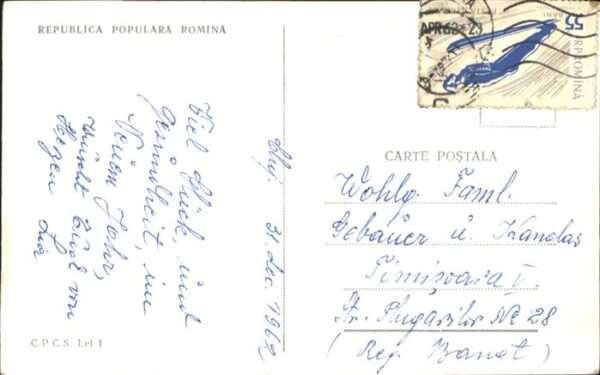 REPUBLICA POPULARA ROMINA
Cluj. 31. Dec. 1962
Viel Glück, und
Gesundheit, im
Neuen Jahr,
wünscht Euch von
Herzen
C.P.C.S. Lei 1
APR 62-23
55
RPROMINA
CARTE POȘTALA
Wohlg. Faml.
Gebauer u. Kanclas
Timișoara V.
Str. Plugarilor No 28
(Reg. Banat)